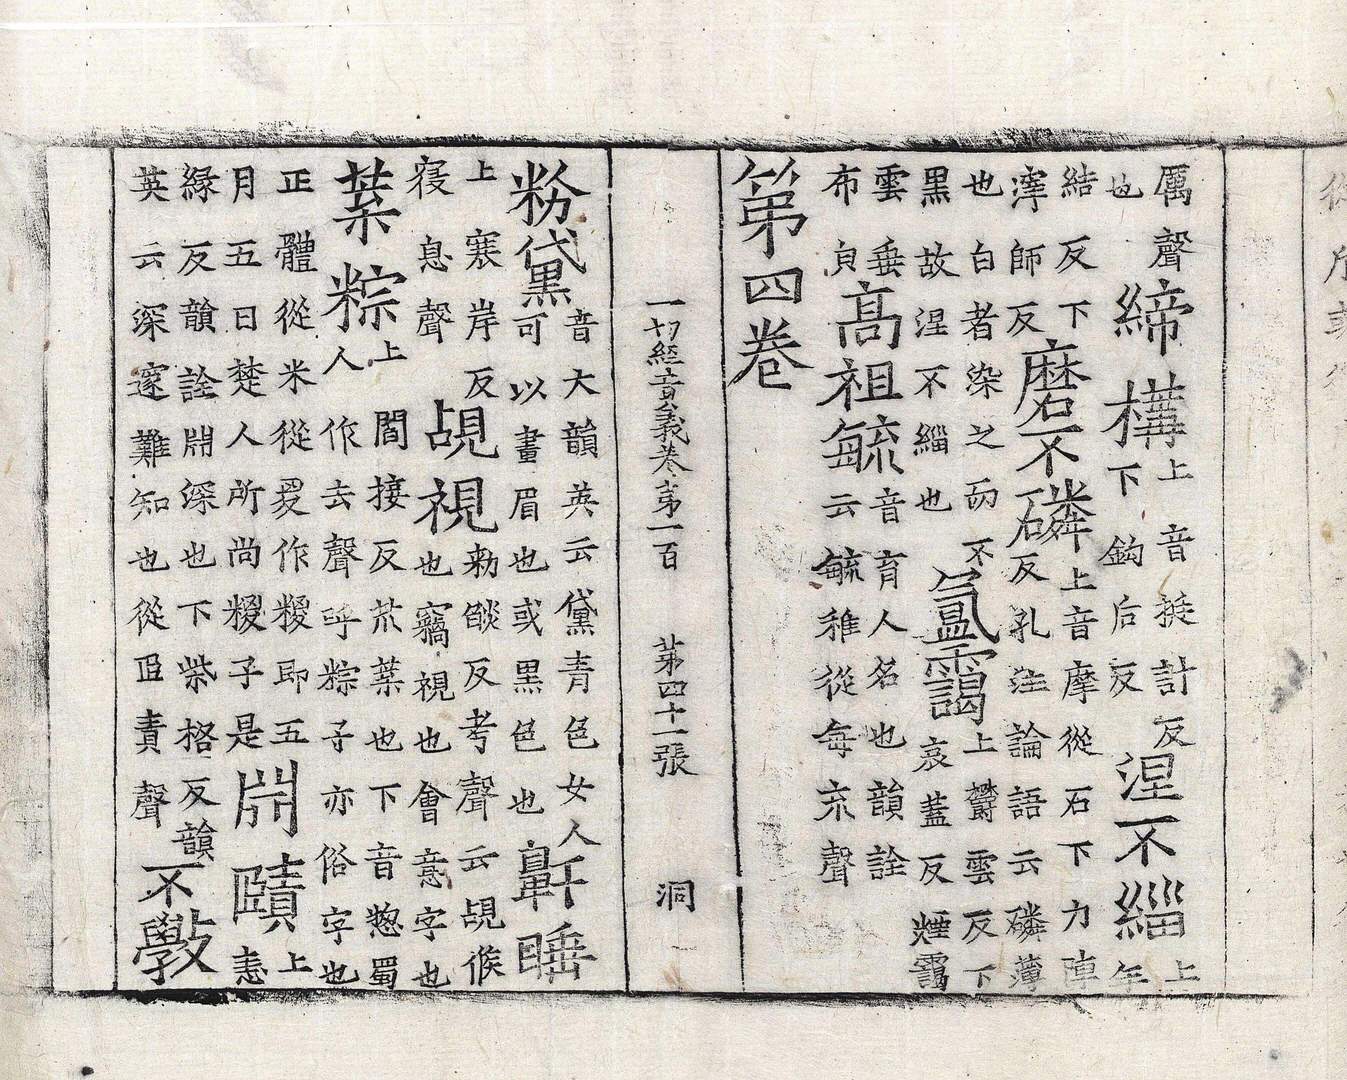 厲聲也締構上音挮計反下鈎后反涅不緇上年
結反下滓師反磨不磷上音摩從石下力陣反孔注論語云磷薄
也白者染之而不黑故涅不緇也氳靄上欝雲反下哀蓋反煙靄
雲垂布皃高祖毓音育人名也韻詮云毓稚從每㐬聲
第四卷
一切經音義卷第一百 第四十一張 洞
粉黛音大韻英云黛青色女人可以畫眉也或黑色也鼾睡
上寒岸反寑息聲覘視勑燄反考聲云覘候也竊視也會意字也
葉粽上閻接反葉也下音惣蜀人作去聲呼粽子亦俗字也
正體從米從㚇作糉即五月五日楚人所尚糉子是𣶒賾上恚
緣反韻詮𣶒深也下柴格反韻英云深邃難知也從𦣞責聲不斆